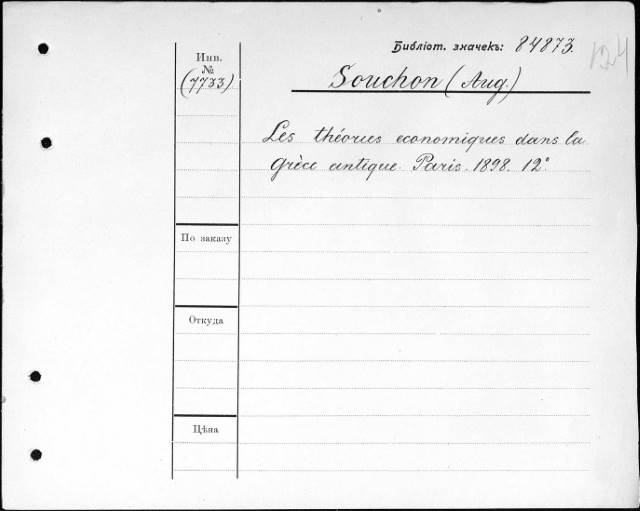 Библіот. значекъ: 84873.
124
Инв.
№
(7733)
Souchon (Aug.)
Les théories economiques dans la
Grèce antique. Paris. 1898. 12°.
По заказу
Откуда
Цѣна